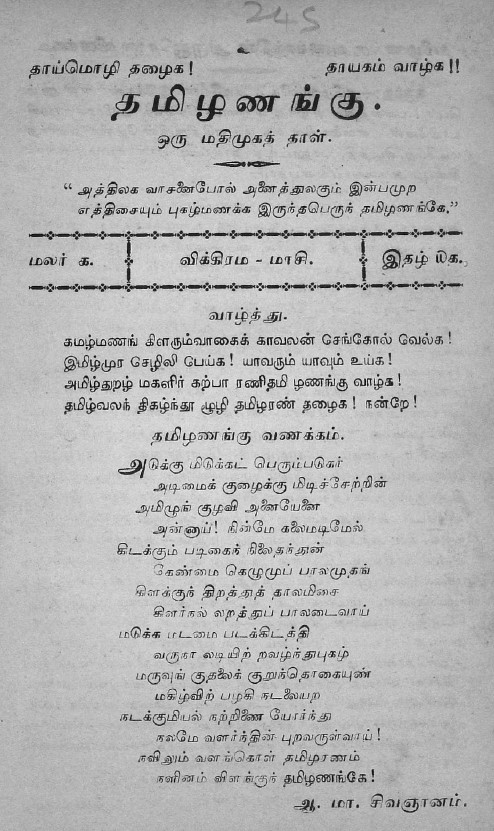 245
தாய்மொழி தழைக! தாயகம் வாழ்க!!
தமிழணங்கு.
ஒரு மதிமுகத் தாள்.
“ அத்திலக வாசனைபோல் அனைத்துலகும் இன்பமுற
எத்திசையும் புகழ்மணக்க இருந்தபெருந் தமிழணங்கே.”
மலர் க. விக்கிரம - மாசி. இதழ் ௰க.
வாழ்த்து.
கமழ்மணங் கிளரும்வாகைக் காவலன் செங்கோல் வெல்க!
இமிழ்முர செழிலி பெய்க! யாவரும் யாவும் உய்க!
அமிழ்துறழ் மகளிர் கற்பா ரணிதமி ழணங்கு வாழ்க!
தமிழ்வலந் திகழ்ந்தூ ழூழி தமிழரண் தழைக! நன்றே!
தமிழணங்கு வணக்கம்.
அடுக்கு மிடுக்கட் பெரும்படுகர்
அடிமைக் குழைக்கு மிடிச்சேற்றின்
அமிழுங் குழவி அனையேனை
அன்னாய்! நின்மே கலைமடிமேல்
கிடக்கும் படிகைந் நிலைதந்துன்
கேண்மை கெழுமுப் பாலமுதங்
கிளக்குந் திறத்துத் தாலமிசை
கிளர்நல் லறத்துப் பாலடைவாய்
மடுக்க மடமை படக்கிடத்தி
வருநா லடியிற் றவழ்ந்துபுகழ்
மருவுங் குதலைக் குறுந்தொகையுண்
மகிழ்விற் பழகி நடலையற
நடக்குமியல் நற்றிணை யோர்ந்து
நலமே வளர்ந்தின் புறவருள்வாய்!
நவிலும் வளங்கொள் தமிழரணம்
நவினம் விளங்குந் தமிழணங்கே!
ஆ. மா. சிவஞானம்.